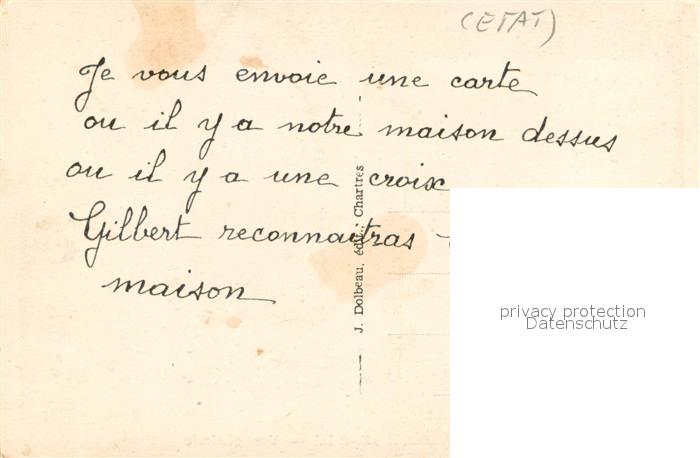 (ETAT)
Je vous envoie une carte
ou il y a notre maison dessus
ou il y a une croix
Gilbert reconnaitras
maison
J. Dolbeau, édit., Chartres
privacy protection
Datenschutz